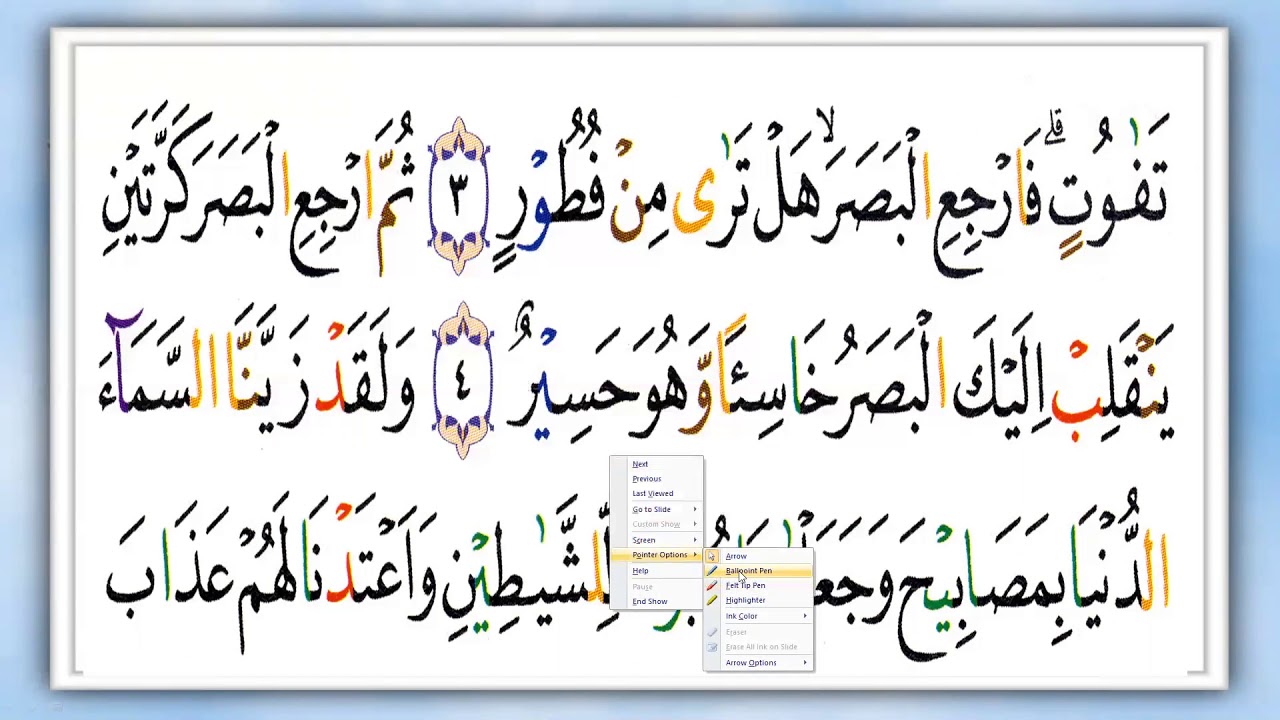 تَفٰوُتٍ ۗ فَارْجِعِ الْبَصَرَ ۙ هَلْ تَرٰى مِنْ فُطُوْرٍ ٣ ثُمَّ ارْجِعِ الْبَصَرَ كَرَّتَيْنِ
يَنْقَلِبْ اِلَيْكَ الْبَصَرُ خَاسِئًا وَّهُوَ حَسِيْرٌ ٤ وَلَقَدْ زَيَّنَّا السَّمَآءَ
الدُّنْيَا بِمَصَابِيْحَ لِّلشَّيٰطِيْنِ وَاَعْتَدْنَا لَهُمْ عَذَابَ
Next
Previous
Last Viewed
Go to Slide
Custom Show
Screen
Pointer Options
Help
Pause
End Show
Arrow
Ballpoint Pen
Felt Tip Pen
Highlighter
Ink Color
Eraser
Erase All Ink on Slide
Arrow Options